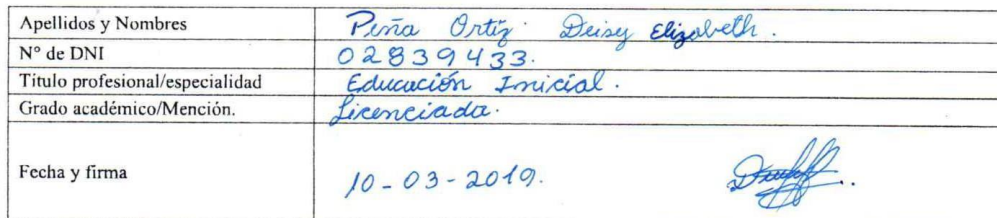 Apellidos y Nombres Peña Ortiz Deisy Elizabeth.
N° de DNI 02839433.
Titulo profesional/especialidad Educación Inicial.
Grado académico/Mención. Licenciada.
Fecha y firma 10-03-2019.